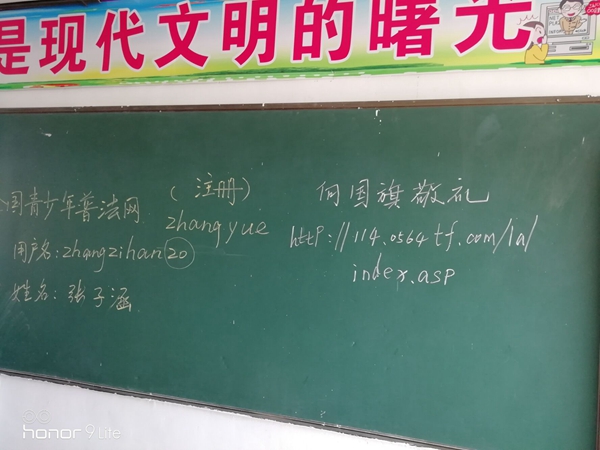 是现代文明的曙光
国青少年普法网
(注册)
zhangyue
用户名:zhangzihan20
姓名:张子涵
向国旗敬礼
http://114.0564tf.com/1a/
index.asp
honor 9 Lite